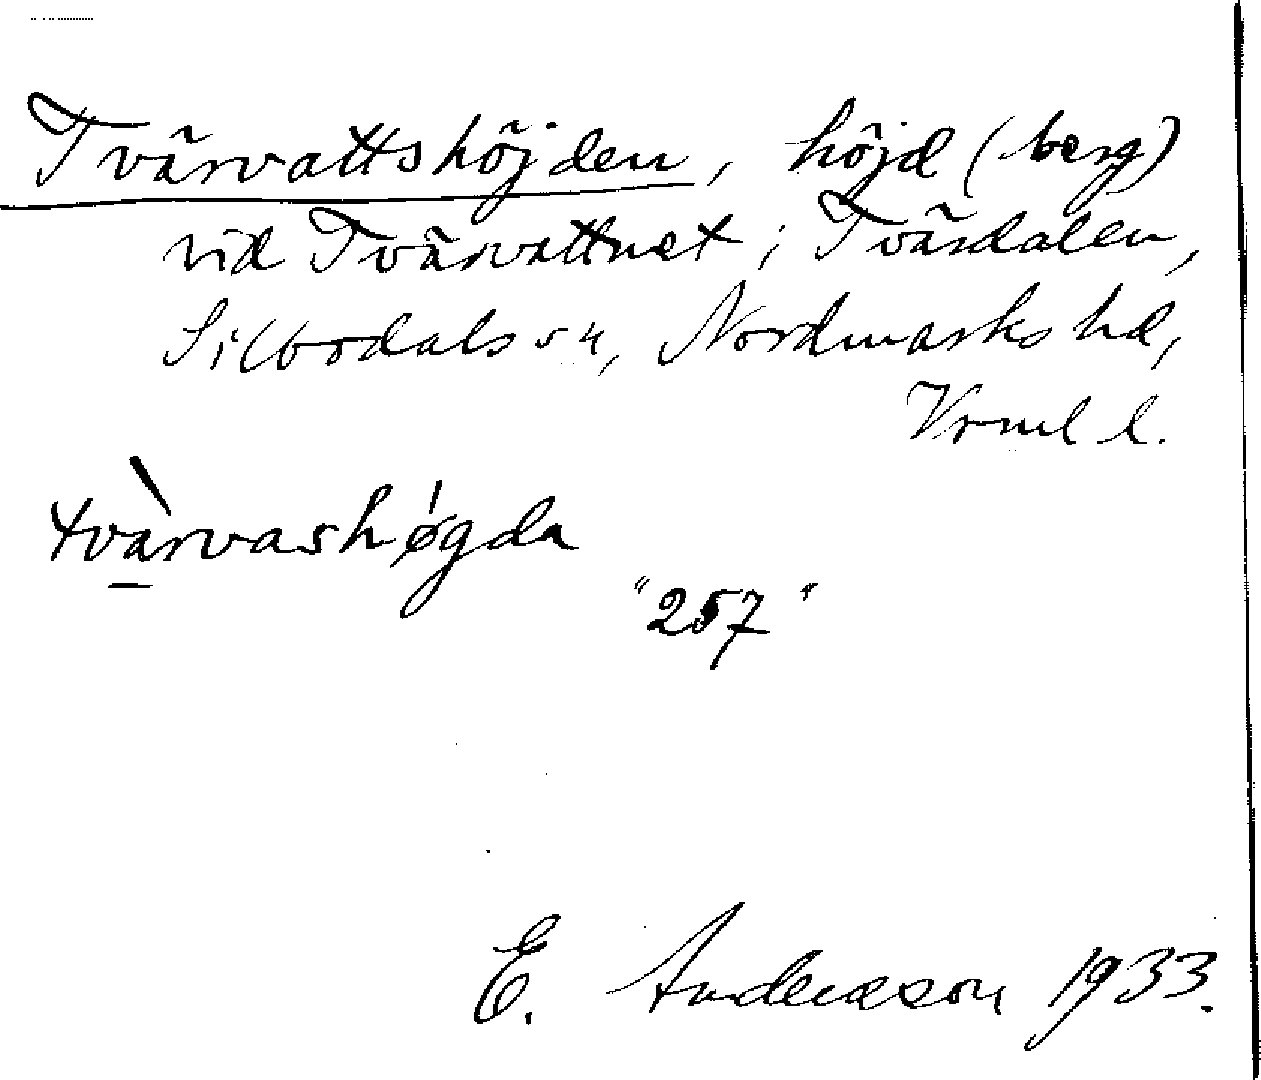 Tvärvattshöjden, höjd (berg)
vid Tvärvattnet i Tvärdalen,
Silbodals sn, Nordmarks hd,
Vrml l.
tvàrvashø̍gda
"257"
E. Andersson 1933.